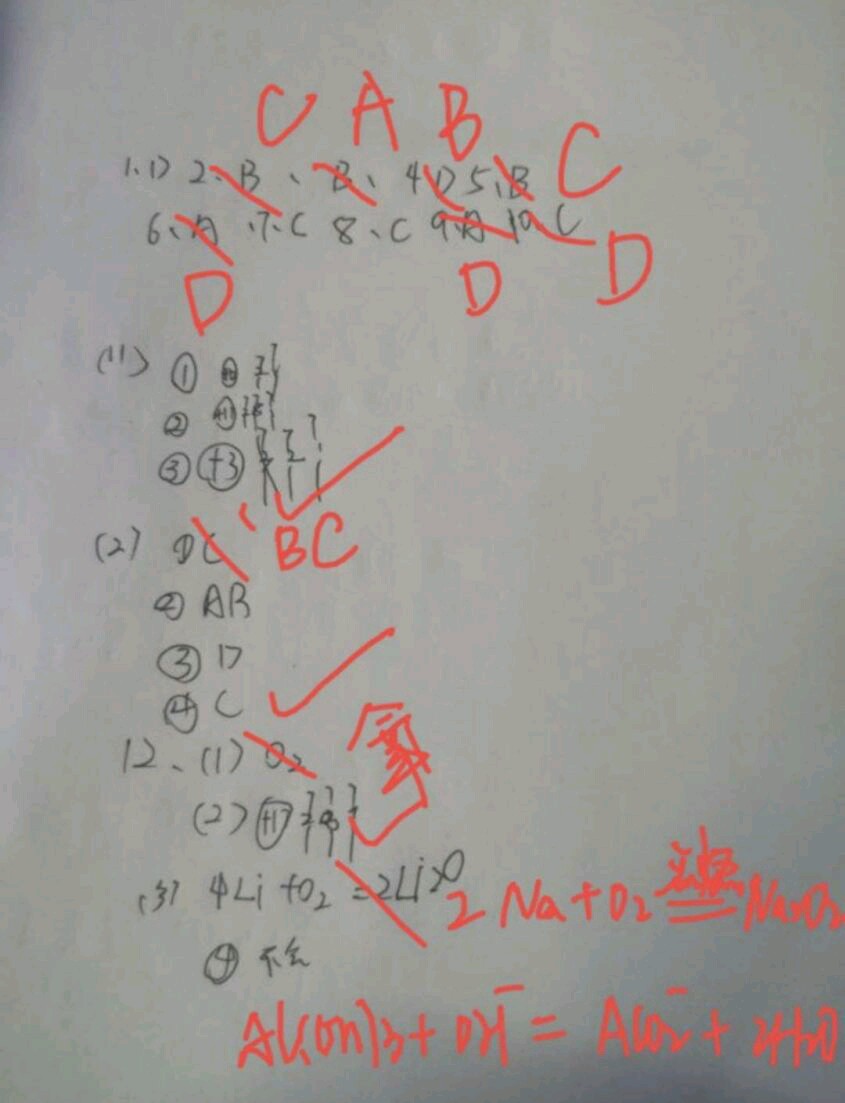 C A B
1、D 2、B、B、4D 5、B C
6、A、7、C 8、C 9、A 10、C
D D D
(11) ①
②
③ +3
(2) ① C BC
② AB
③ D
④ C
12、(1) O₂ 氧
(2) +17
(3) 4Li + O₂ = 2Li₂O 2Na + O₂ 点燃 Na₂O₂
④ 不会
Al(OH)₃ + OH⁻ = AlO₂⁻ + 2H₂O